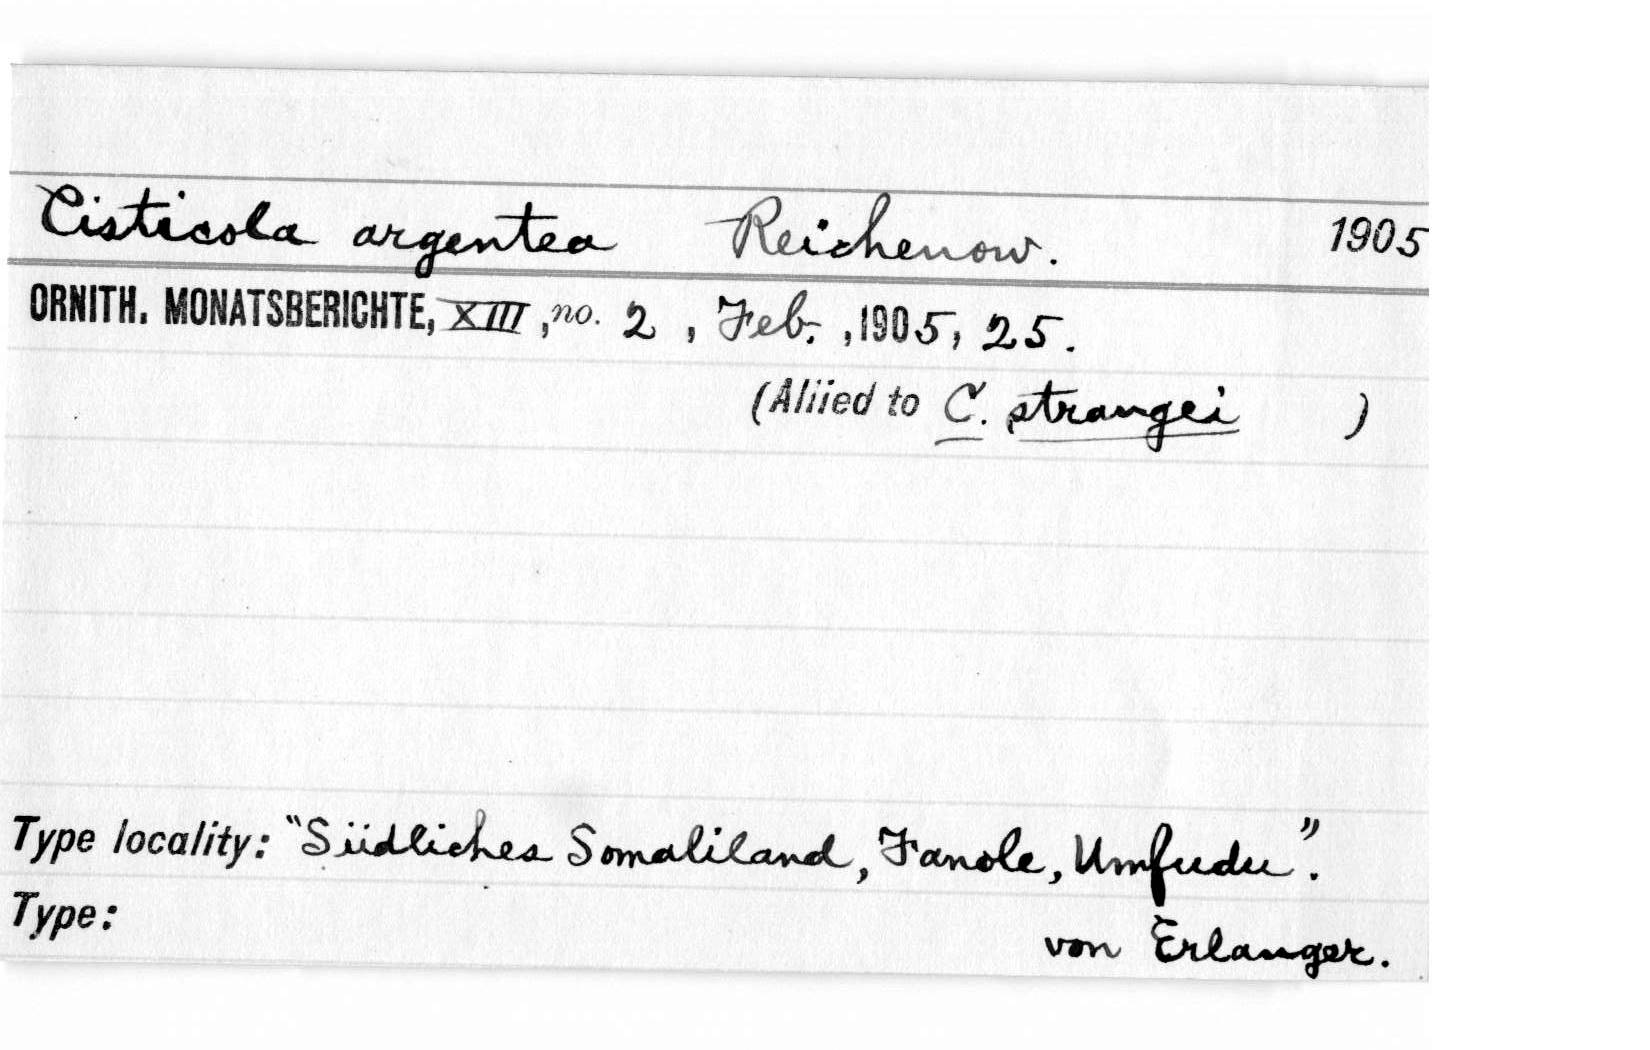 Cisticola argentea Reichenow. 1905
ORNITH. MONATSBERICHTE, XIII, no. 2, Feb., 1905, 25.
(Allied to C. strangei )
Type locality: "Südliches Somaliland, Fanole, Umfudu".
Type: von Erlanger.